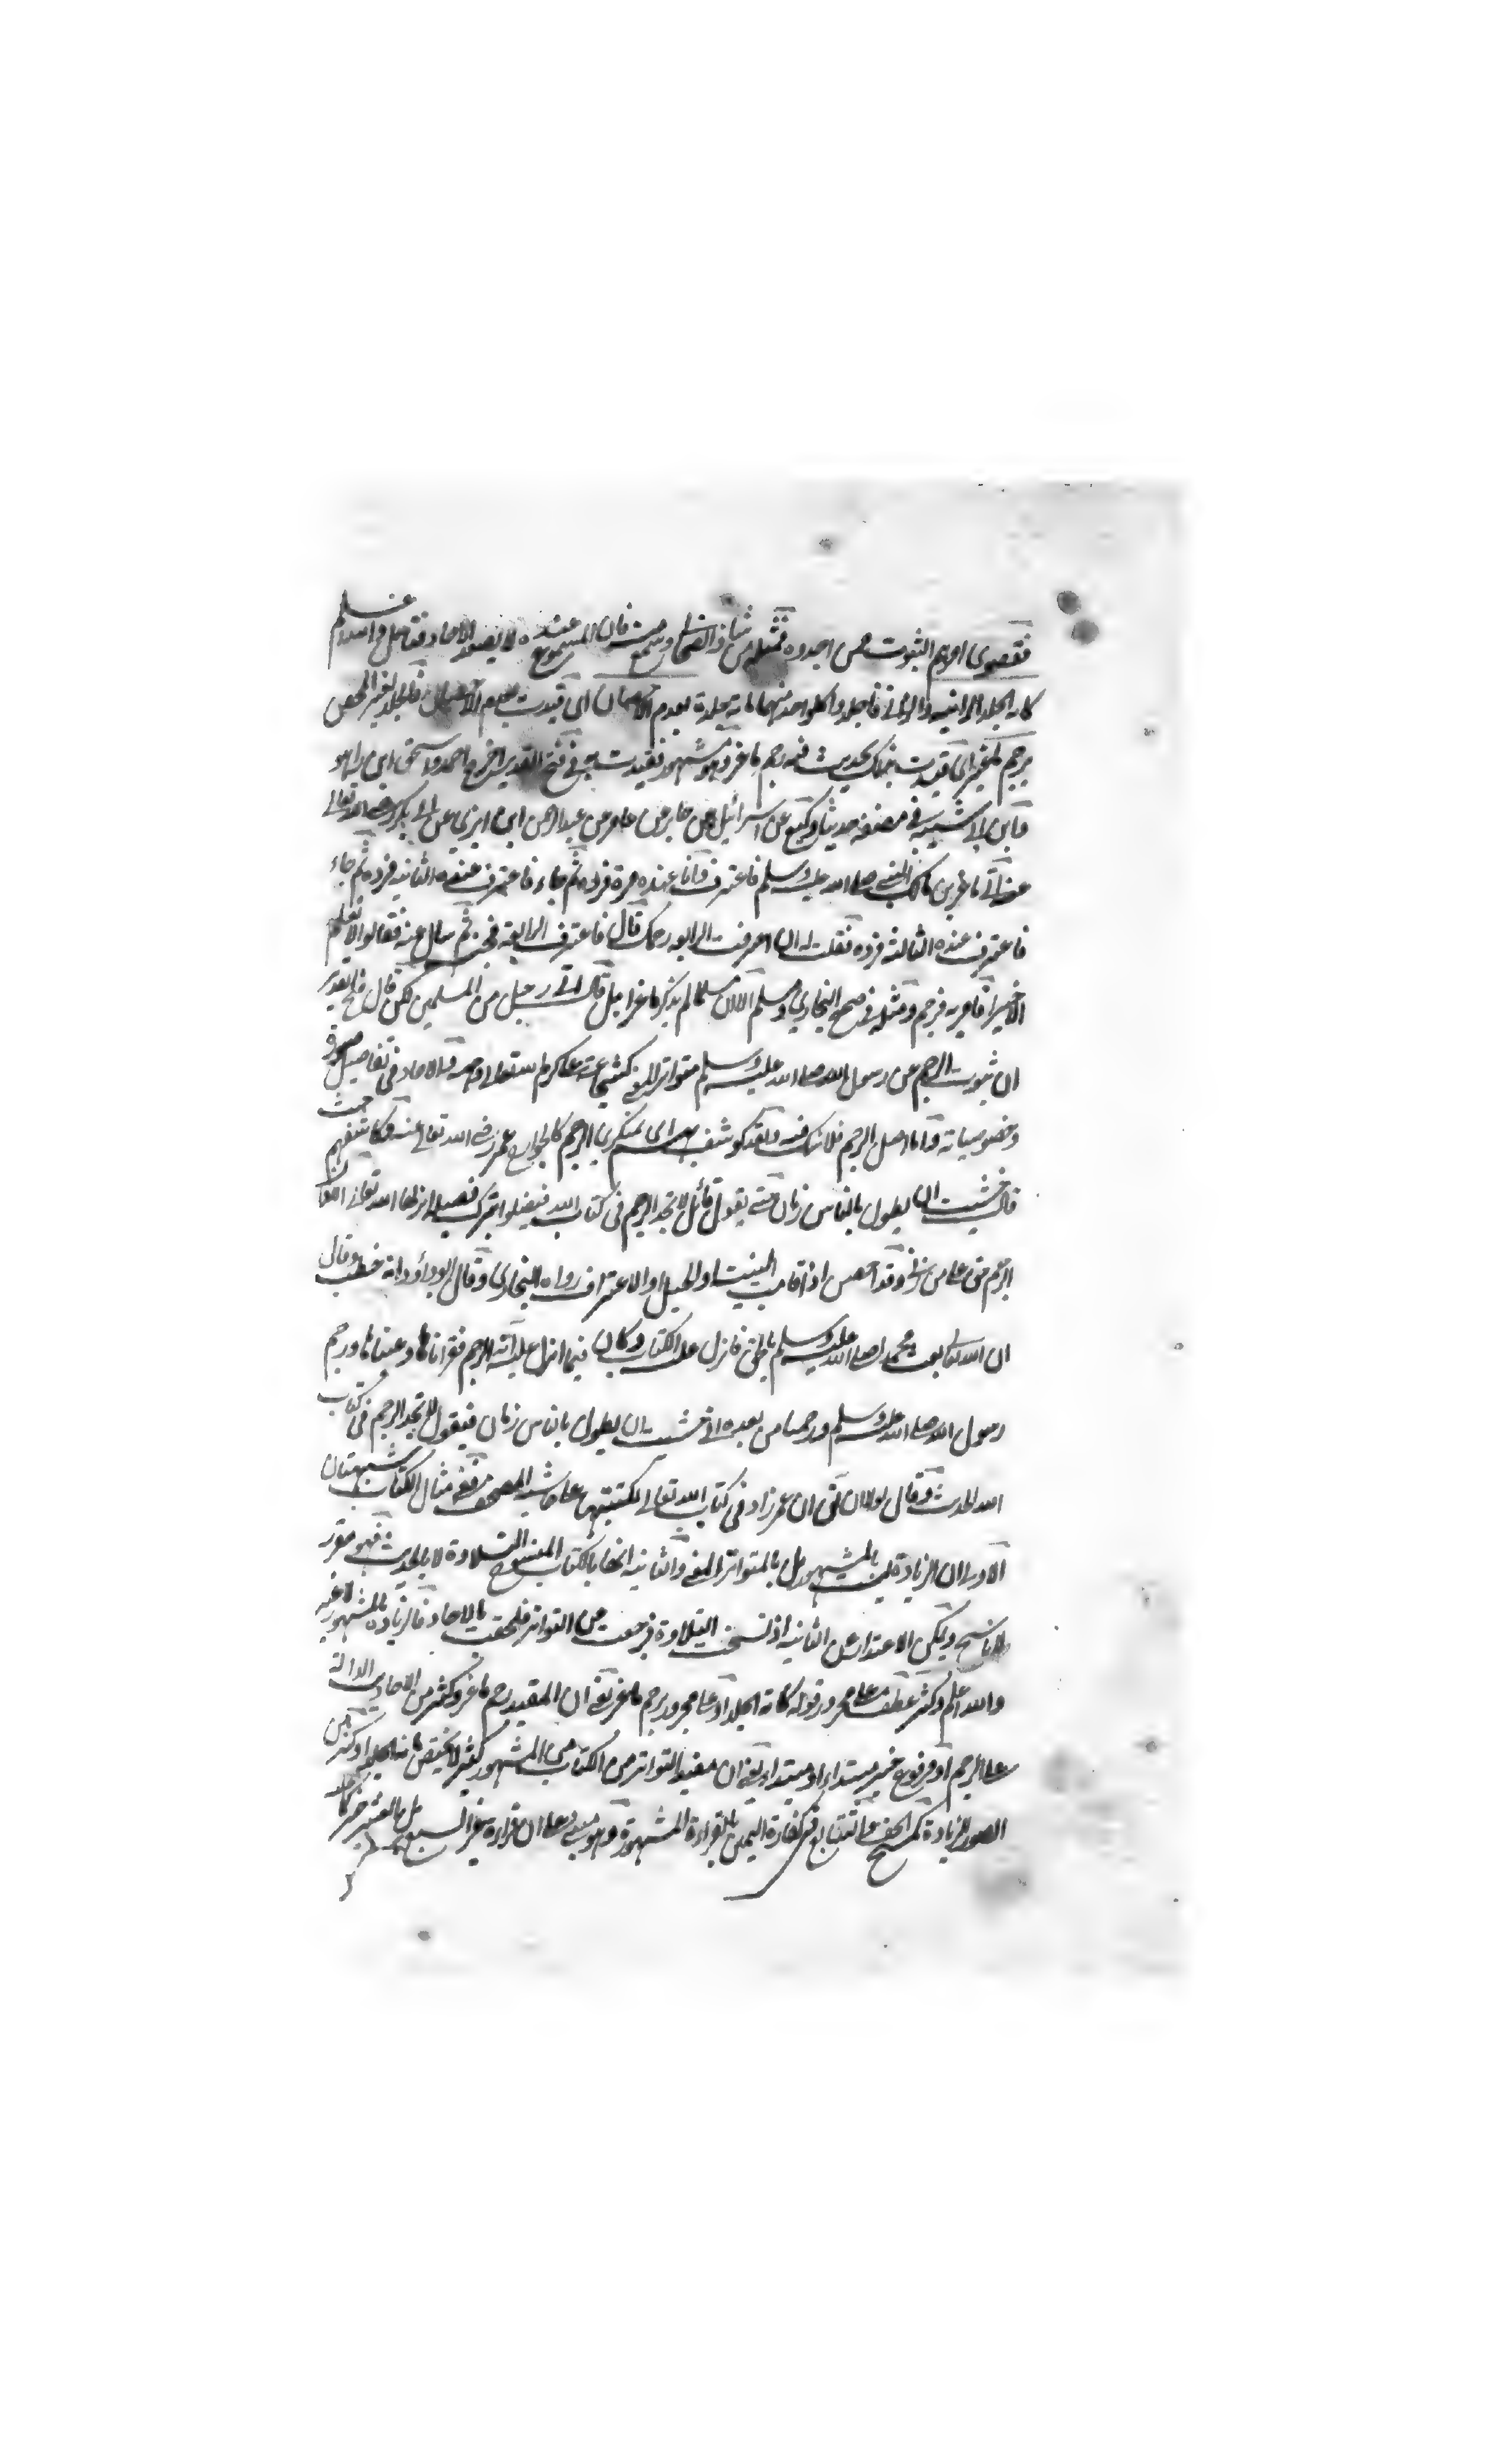 فقصوى اوهم الثبوت من اجدوه فمثله من شاذ الصحاح وسمع من فان المسموع عنده لا يصور الاحاد فتامل والله اعلم
كاية الجلد الزانية والزاني فاجلدوا كل واحد منهما مائة جلدة بعدم الاحصان اى قيدت بعدم الاحصان فالجلد لغير المحصن
برجم ماعز اى قيدت بذلك بحديث فيه رجم ماعز وهو مشهور فقيدت به فى فتح القدير اخرج احمد واسحق ابن راهو
وابن ابى شيبة فى مصنفه حدثنا وكيع عن اسرائيل عن جابر عن عامر عن عبد الرحمن ابن ابزى عن ابى بكر رضى الله تعالى
عنه اتى ماعز بن مالك النبى صلى الله عليه وسلم فاعترف وانا عنده مرة فرده ثم جاء فاعترف عنده الثانية فرده ثم جاء
فاعترف عنده الثالثة فرده فقلت له ان اعترفت الرابعة رجمك قال فاعترف الرابعة فحبسه ثم سال عنه فقالوا لا نعلم
الا خيرا فامر به فرجم ومثله فى صحيح البخارى ومسلم الا ان مسلما لم يذكر ماعزا بل قال اتى رجل من المسلمين لكن قال فى فتح القدير
ان ثبوت الرجم عن رسول الله صلى الله عليه وسلم متواتر المعنى كشجاعة على كرم الله تعالى وجهه والاحاد فى تفاصيل صوره
وخصوصياته واما اصل الرجم فلا شك فيه ولقد كوشف بهم اى بمنكرى الرجم كالخوارج عمر رضى الله تعالى عنه وكاشفهم حيث
قال خشيت ان يطول بالناس زمان حتى يقول قائل لا نجد الرجم فى كتاب الله فيضلوا بترك فريضة انزلها الله تعالى الا وان
الرجم حق على من زنى وقد احصن اذا قامت البينة او الحبل او الاعتراف رواه البخارى وقال ابو داود انه خطب وقال
ان الله تعالى بعث محمدا صلى الله عليه وسلم بالحق فانزل عليه الكتاب وكان فيما انزل عليه اية الرجم فقراناها ووعيناها ورجم
رسول الله صلى الله عليه وسلم ورجمنا من بعده انى خشيت ان يطول بالناس زمان فيقول لا نجد الرجم فى كتاب
الله الحديث وقال لولا ان يقال ان عمر زاد فى كتاب الله تعالى لكتبتها على حاشية المصحف ففى مثال الكتاب شبهتان
الاولى ان الزيادة ليست بالمشهور بل بالمتواتر المعنى والثانية انها بالكتاب المنسوخ التلاوة لا بالحديث فهو مقرر
لا ناسخ ويمكن الاعتذار عن الثانية اذ نسخت التلاوة فرجعت عن التواتر فلحقت بالاحاد فالزيادة بالمشهور لا غير
والله اعلم وكثر عطف على مجرور قوله كاية الجلد او على مجرور برجم ماعز يعنى ان المقيد رجم ماعز وكثير من الاحاديث الدالة
على الرجم او مرفوع خبر مبتدا او مبتدا يعنى ان مقيد المتواتر من الكتاب من المشهور كثير لا يختص باية الجلد او كثير من
الصور للزيادة كمسح الخف والتتابع فى كفارة اليمين بالقراءة المشهورة وهو مبنى على ان قراءة غير السبع بل العشر خبر كما